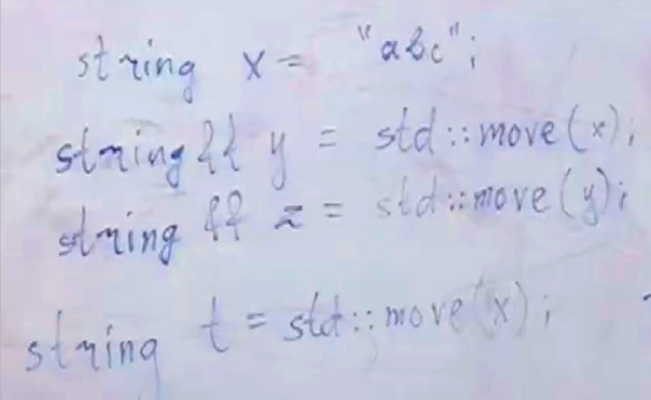 string x = "abc";
string && y = std::move(x);
string && z = std::move(y);
string t = std::move(x);